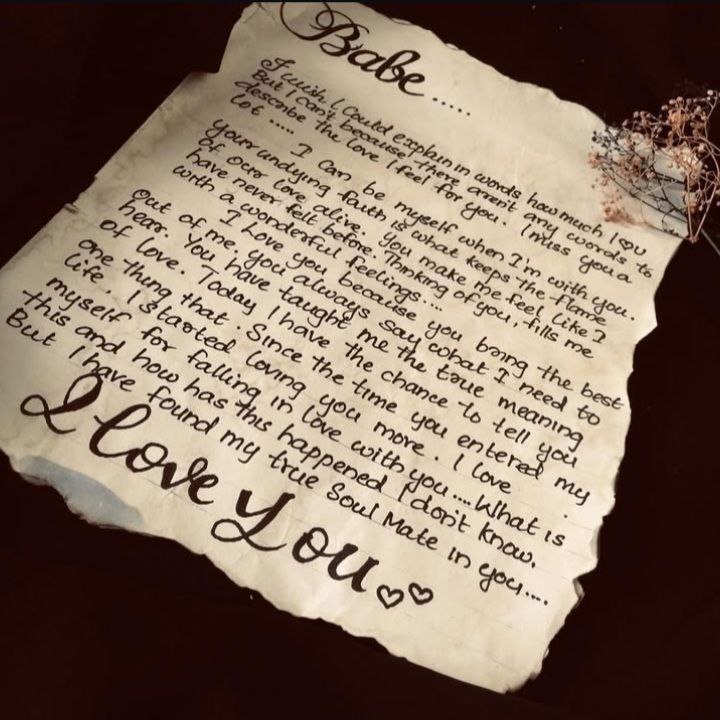 Babe.....
I wish I could explain in words how much I love you
But I can't because there aren't any words to
describe the love I feel for you. I miss you a
lot .....
I can be myself when I'm with you.
your undying faith is what keeps the flame
of our love alive. you make me feel like I
have never felt before. Thinking of you, fills me
with a wonderful feelings....
I Love you because you bring the best
out of me. you always say what I need to
hear. You have taught me the true meaning
of love. Today I have the chance to tell you
one thing that. Since the time you entered my
life. I started loving you more. I love
myself for falling in love with you.... What is
this and how has this happened I don't know.
But I have found my true Soul Mate in you....
I love You